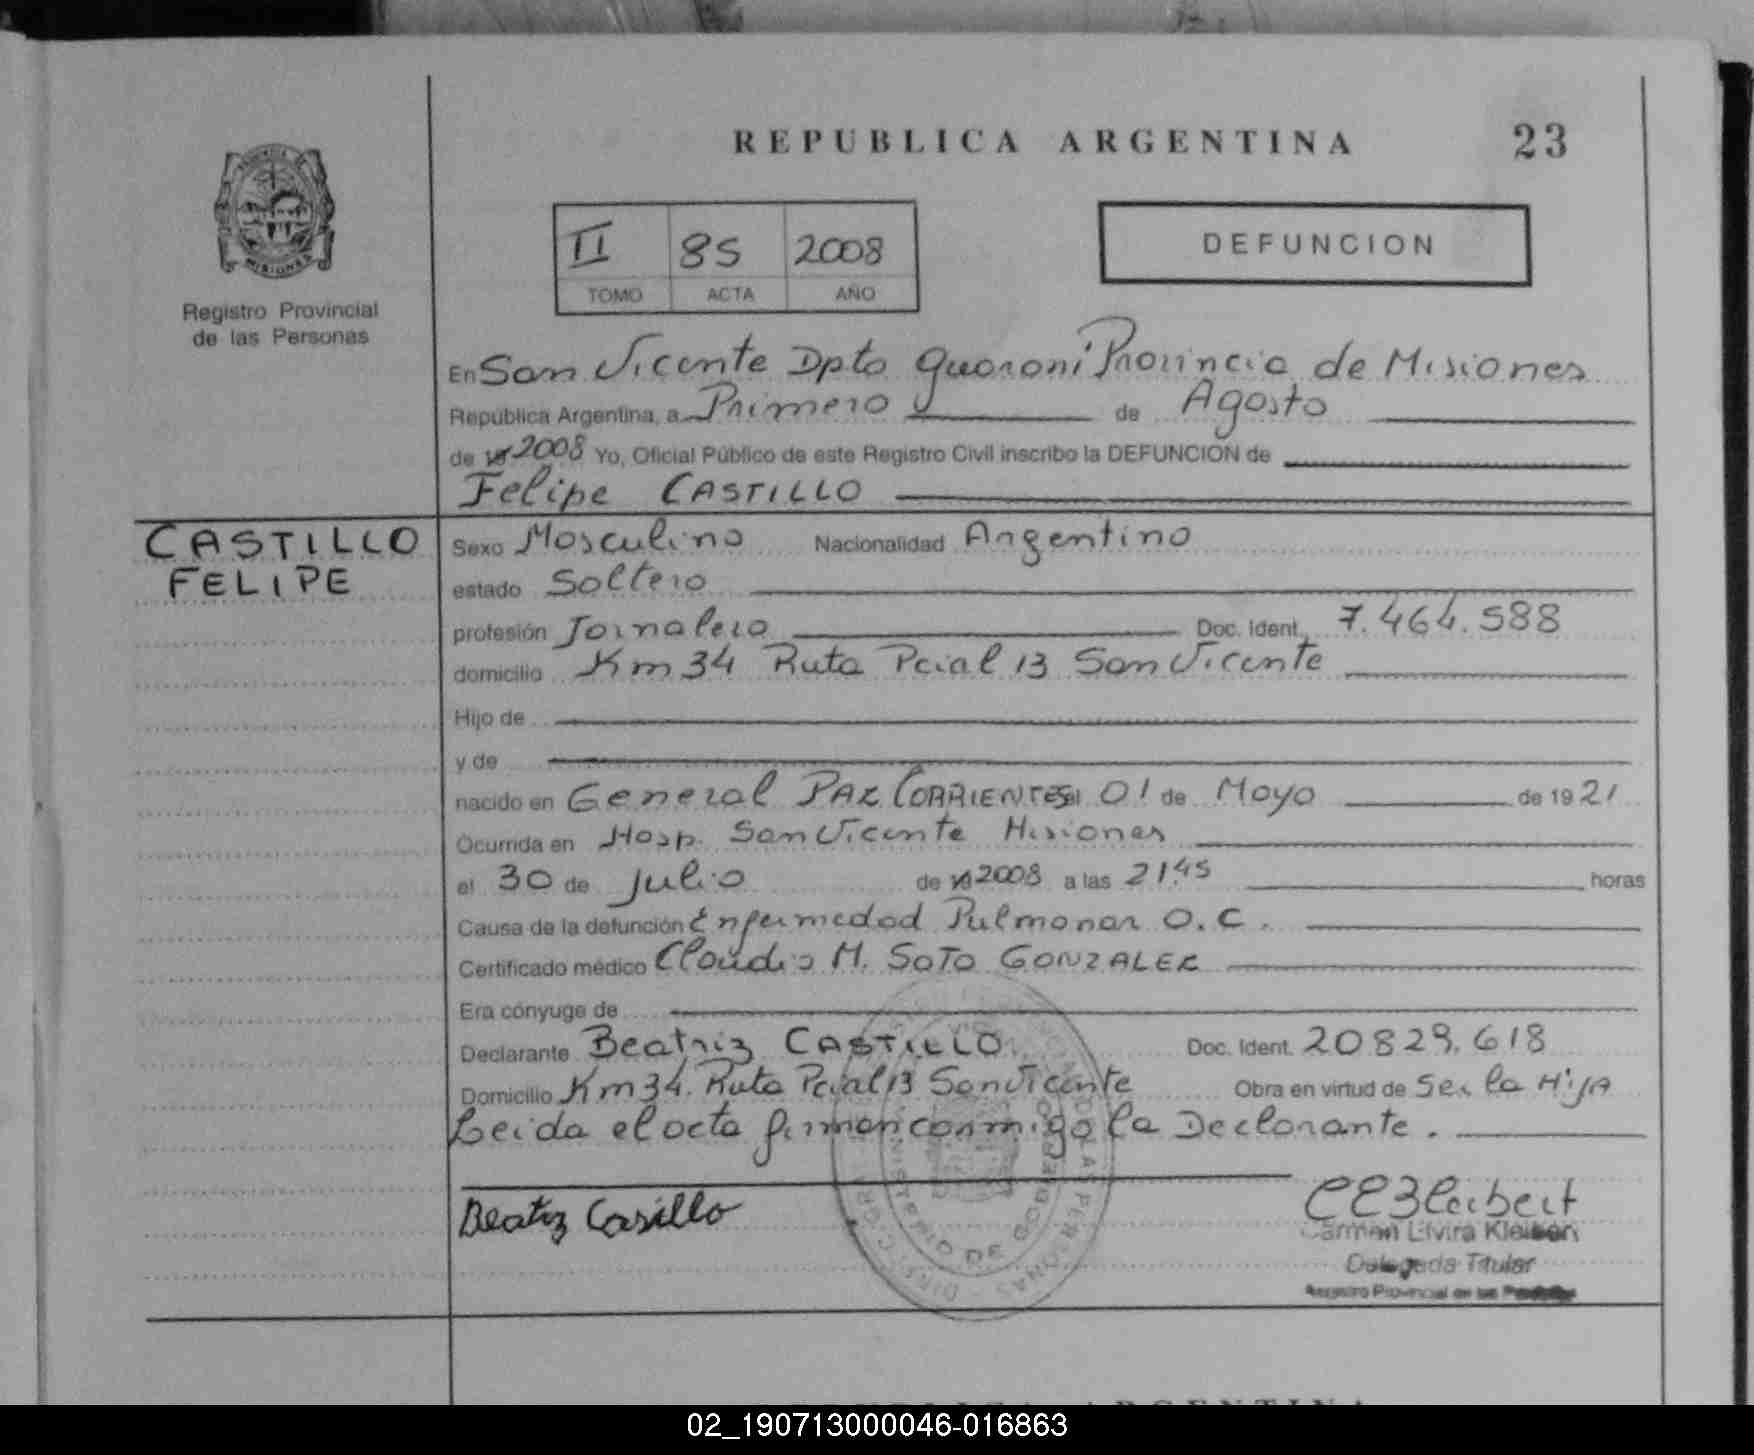 REPUBLICA ARGENTINA
23
MISIONES
Registro Provincial
de las Personas
II 85 2008
TOMO ACTA AÑO
DEFUNCION
En San Vicente Dpto Guaraní Provincia de Misiones
República Argentina, a Primero de Agosto
de 19 2008 Yo, Oficial Público de este Registro Civil inscribo la DEFUNCION de
Felipe CASTILLO
CASTILLO
FELIPE
Sexo Masculino Nacionalidad Argentino
estado Soltero
profesión Jornalero Doc. Ident. 7.464.588
domicilio Km 34 Ruta Pcial 13 San Vicente
Hijo de
y de
nacido en General PAZ CORRIENTES el 01 de Mayo de 19 21
Ocurrida en Hosp. San Vicente Misiones
el 30 de Julio de 19 2008 a las 21:45 horas
Causa de la defunción Enfermedad Pulmonar O.C.
Certificado médico Claudio M. SOTO GONZALEZ
Era cónyuge de
Declarante Beatriz CASTILLO Doc. Ident. 20829.618
Domicilio Km 34. Ruta Pcial 13 San Vicente Obra en virtud de Ser la HijA
Leida el acta firman conmigo la Declarante.
Beatiz Casillo
MINISTERIO DE GOBIERNO
Carmen Elvira Kleibert
Delegada Titular
Registro Provincial de las Personas
02_190713000046-016863